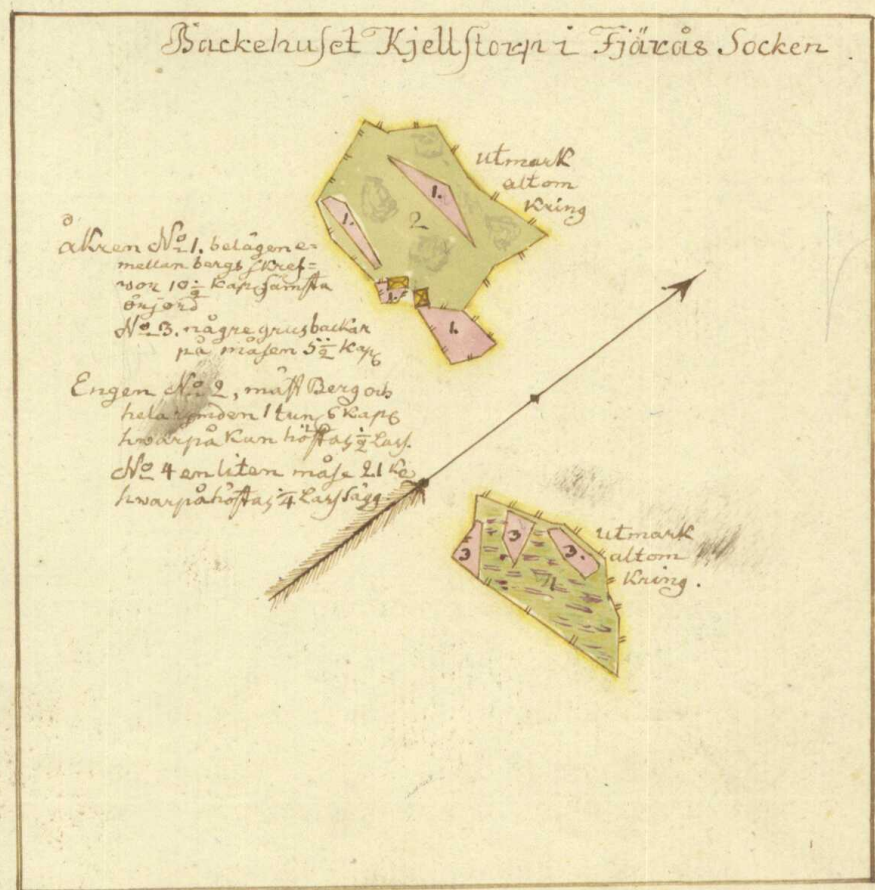 Backehuset Kjellstorp i Fjärås Socken
utmark
altom
Kring
1.
1.
2
1.
1.
åkren No 1. belägen e=
mellan bergs skref=
wor 10 1/2 Kap sämsta
örjord
No 3. någre grusbackar
på måsen 5 1/2 Kap
Engen No 2, mäst Berg och
hela rymden 1 tun 6 Kap
hwarpå Kun höstas 1/2 Lass.
No 4 en liten måse 21 K
hwarpå höstas 1/4 Lass
3
3
3.
utmark
altom
Kring.